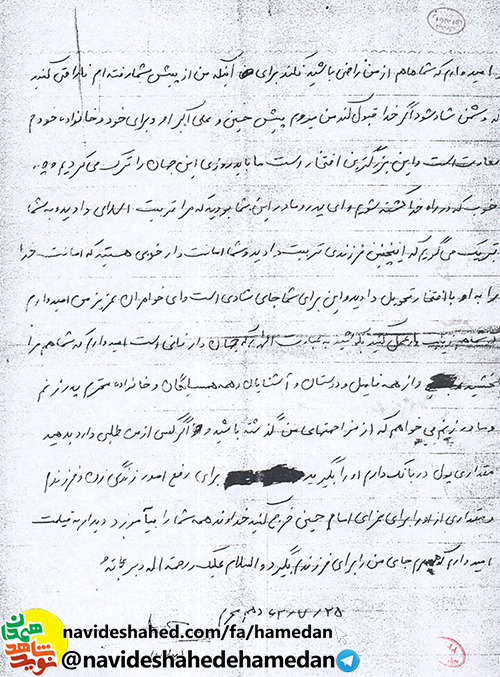 و امیدوارم که شما هم از من راضی باشید نکند برای اینکه من از پیش شما رفته ام ناراحتی کنید
که دشمن شاد شود اگر خدا قبول کند من میروم پیش حسین و علی اکبر او و برای خود و خانواده خودم
سعادت است و این بزرگترین افتخار است ما باید روزی این جهان را ترک می کردیم و چه
خوب که در راه خدا کشته شویم و ای پدر و مادر این شما بودید که مرا تربیت اسلامی دادید به شما
تبریک می گویم که اینچنین فرزندی تربیت دادید و شما امانت دار خوبی هستید که امانت خدا
را به او با افتخار تحویل دادید و این برای شما جای شادی است و ای خواهران عزیز من امیدوارم
که شما هم زینب وار عمل کنید جهان دار فانی است امیدوارم که شما هم مرا
ببخشید و از همه فامیل و دوستان و آشنایان و همه همسایگان و خانواده محترم پدر زنم
و مادر زنم می خواهم که از مزاحمتهای من گذشته باشید و اگر کسی از من طلبی دارد بدهید
مقداری پول در بانک دارم او را بگیرید برای رفع امور زندگی زن و فرزندم
و مقداری از او را برای عزای امام حسین خرج کنید خداوند همه شما را بیامرزد دیدار به قیامت
امیدوارم که جای من را برای فرزندم بگیرد والسلام علیک و رحمة اله و برکاته
۶۲/۷/۲۵ دهم محرم
نوید شاهد همدان
navideshahed.com/fa/hamedan
@navideshahedehamedan